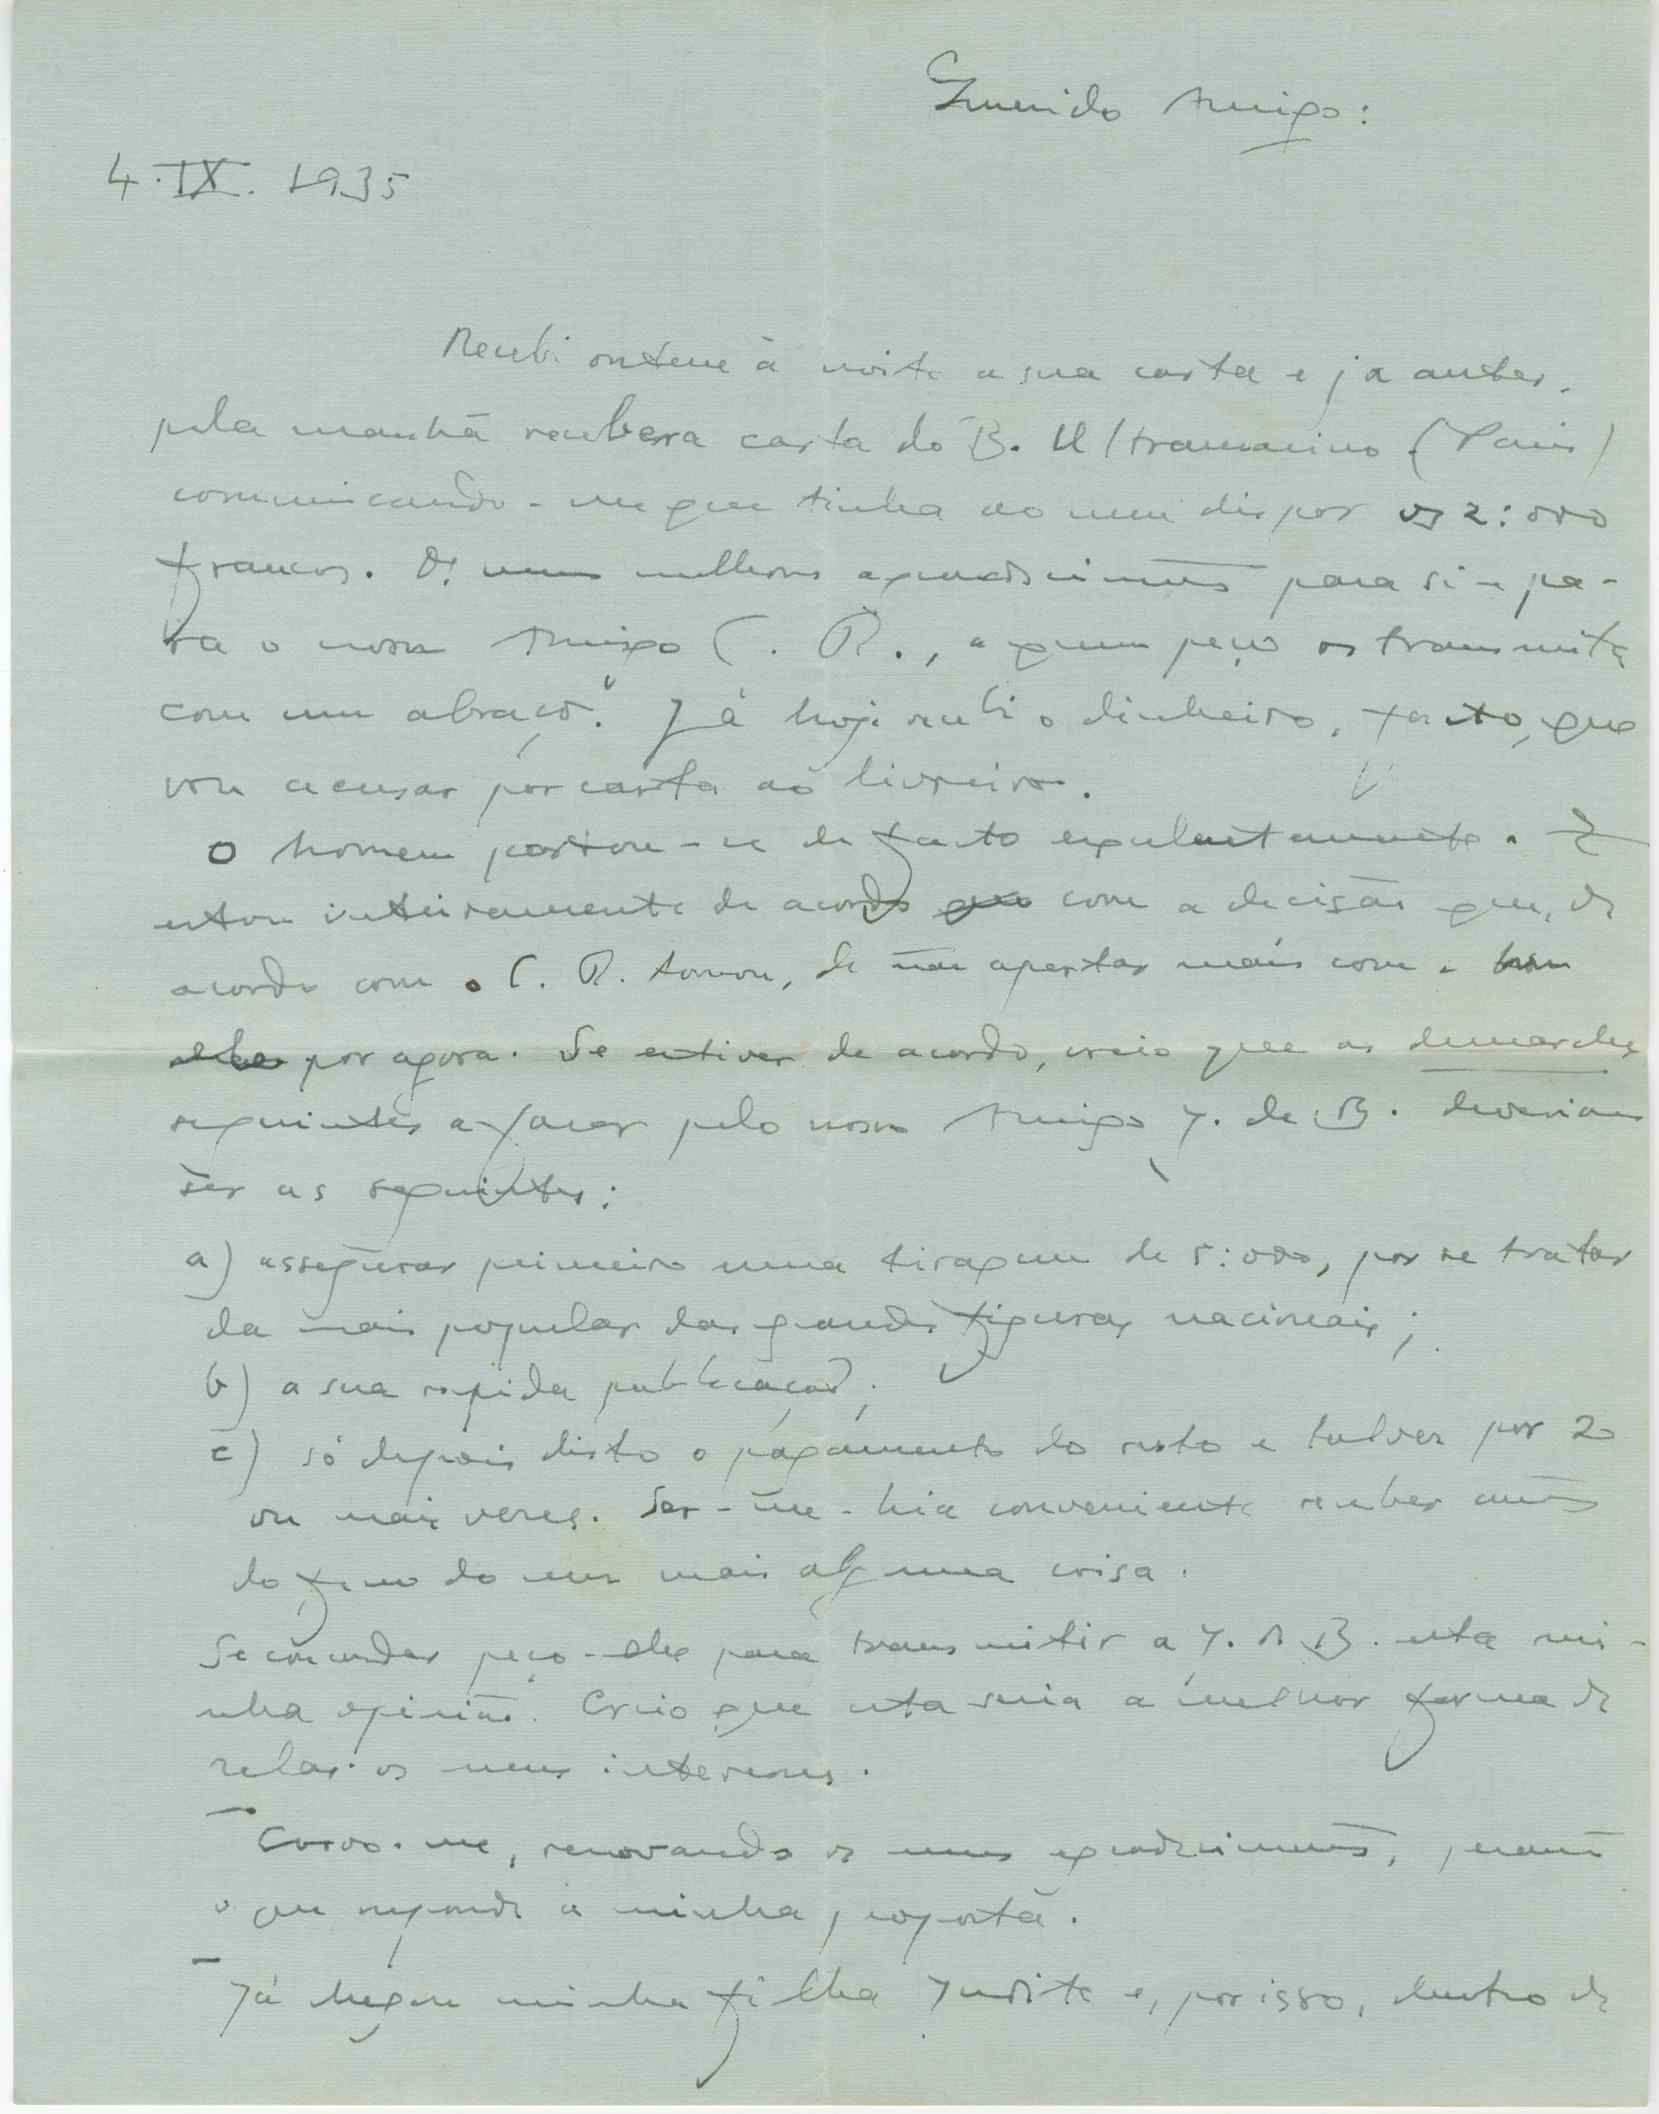 Querido Amigo:
4.IX.1935
Recebi ontem à noite a sua carta e já antes,
pela manhã recebera carta do B. Ultramarino (Paris)
comunicando-me que tinha ao meu dispor os 2:000
francos. Os meus melhores agradecimentos para si e pa-
ra o nosso Amigo C. R., a quem peço os transmita
com um abraço. Já hoje recebi o dinheiro, facto, que
vou acusar por carta ao livreiro.
O homem portou-se de facto excelentemente. E
estou inteiramente de acordo com a decisão que, de
acordo com o C. R. tomou, de não apertar mais com o
por agora. Se estiver de acordo, creio que as demarches
seguintes a fazer pelo nosso Amigo J. de B. deveriam
ser as seguintes:
a) assegurar primeiro uma tiragem de 5:000, por se tratar
da mais popular das grandes figuras nacionais;
b) a sua rapida publicação;
c) só depois disto o pagamento do resto e talvez por 2
ou mais vezes. Ser-me-hia conveniente receber antes
do fim do mez mais alguma coisa.
Se concordar peço-lhe para transmitir a J. de B. esta mi-
nha opinião. Creio que esta seria a melhor forma de
zelar os meus interesses.
renovando os meus agradecimentos,
o que responde à minha proposta.
Já chegou minha filha Judite e, por isso, dentro de